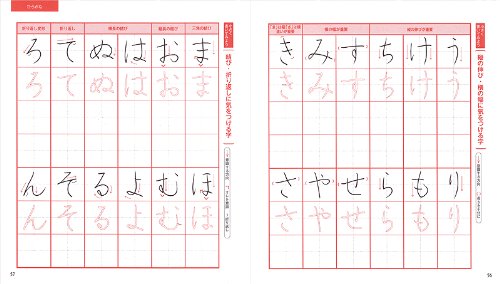 縦の伸び・横の幅に気をつける字
縦の伸びが重要
横の幅が重要
うけちすみき
うけちすみき
りもらせやさ
りもらせやさ
56
ひらがな
結び・折り返しに気をつける字
三角の結び
縦長の結び
横長の結び
折り返し
折り返し変形
まおはぬてろ
まおはぬてろ
ほむよるそん
ほむよるそん
57